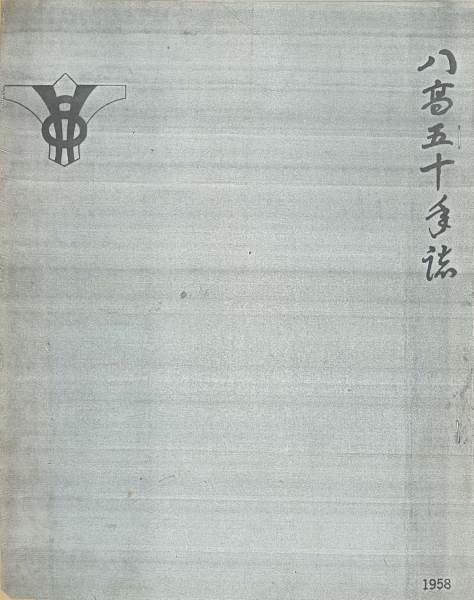 八高五十年誌
1958